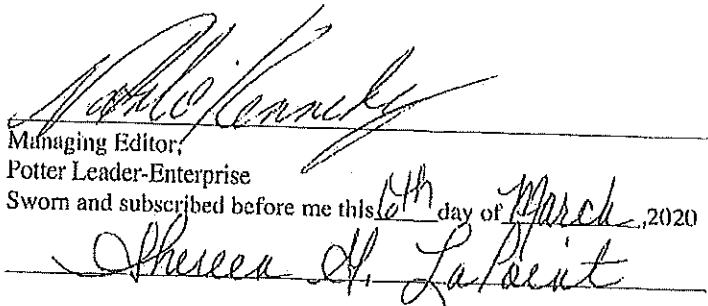 Kennedy
Managing Editor,
Potter Leader-Enterprise
Sworn and subscribed before me this 6th day of March, 2020
Shereen H. LaPoint